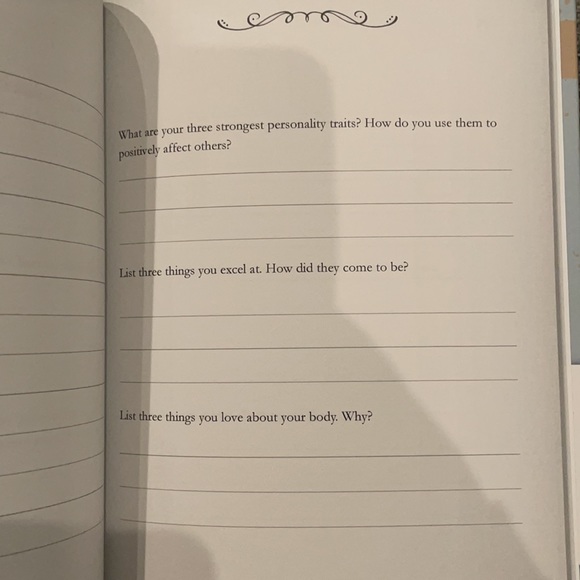 What are your three strongest personality traits? How do you use them to
positively affect others?
List three things you excel at. How did they come to be?
List three things you love about your body. Why?